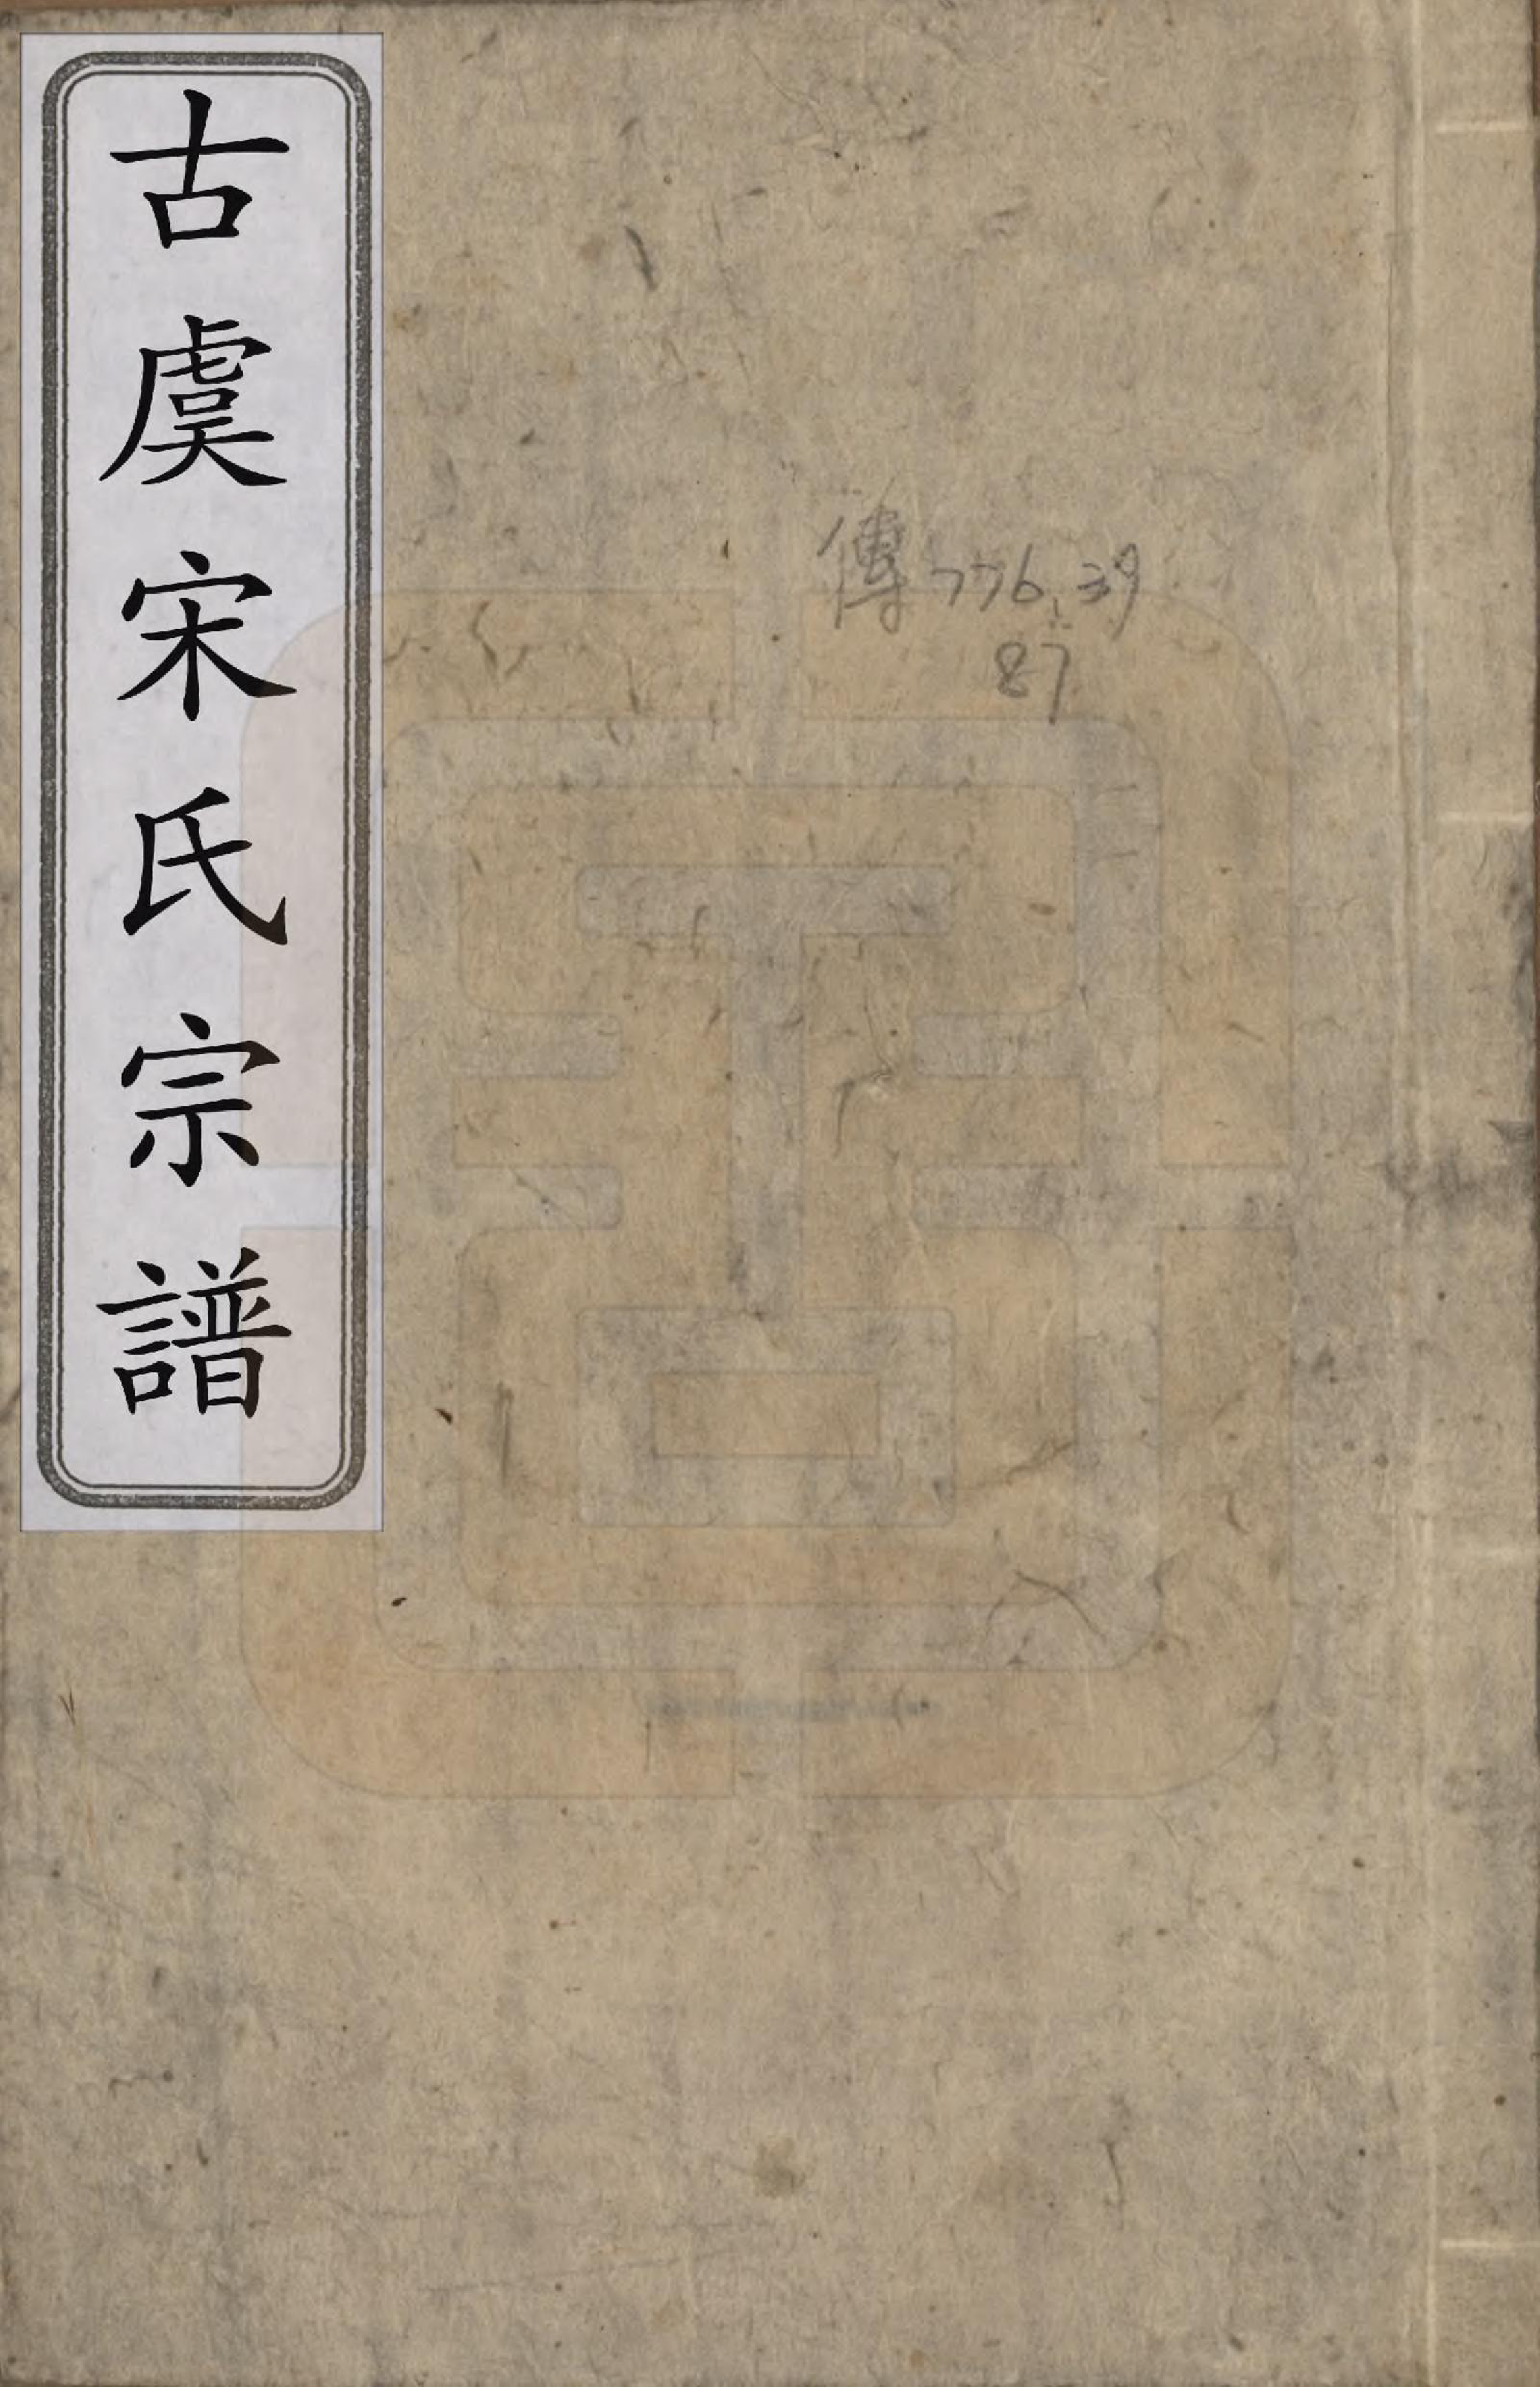 古虞宋氏宗譜
傳776.39
87